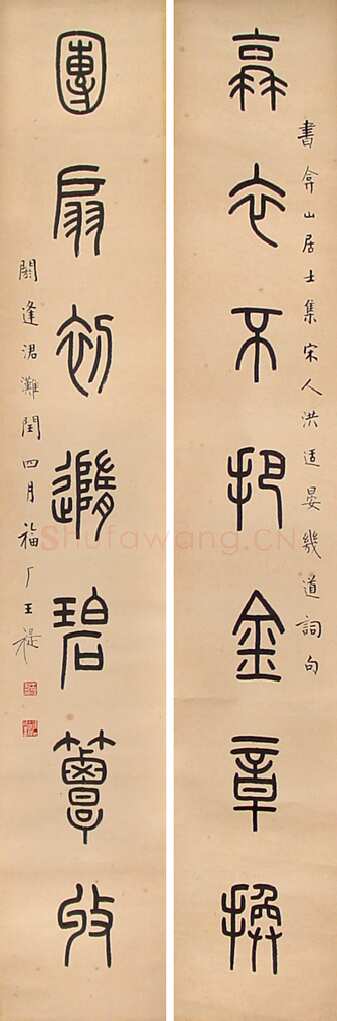 麻衣不把金章換
書弇山居士集宋人洪适晏幾道詞句
團扇初隨碧簟收
閼逢涒灘閏四月福厂王禔
Shufawang.CN